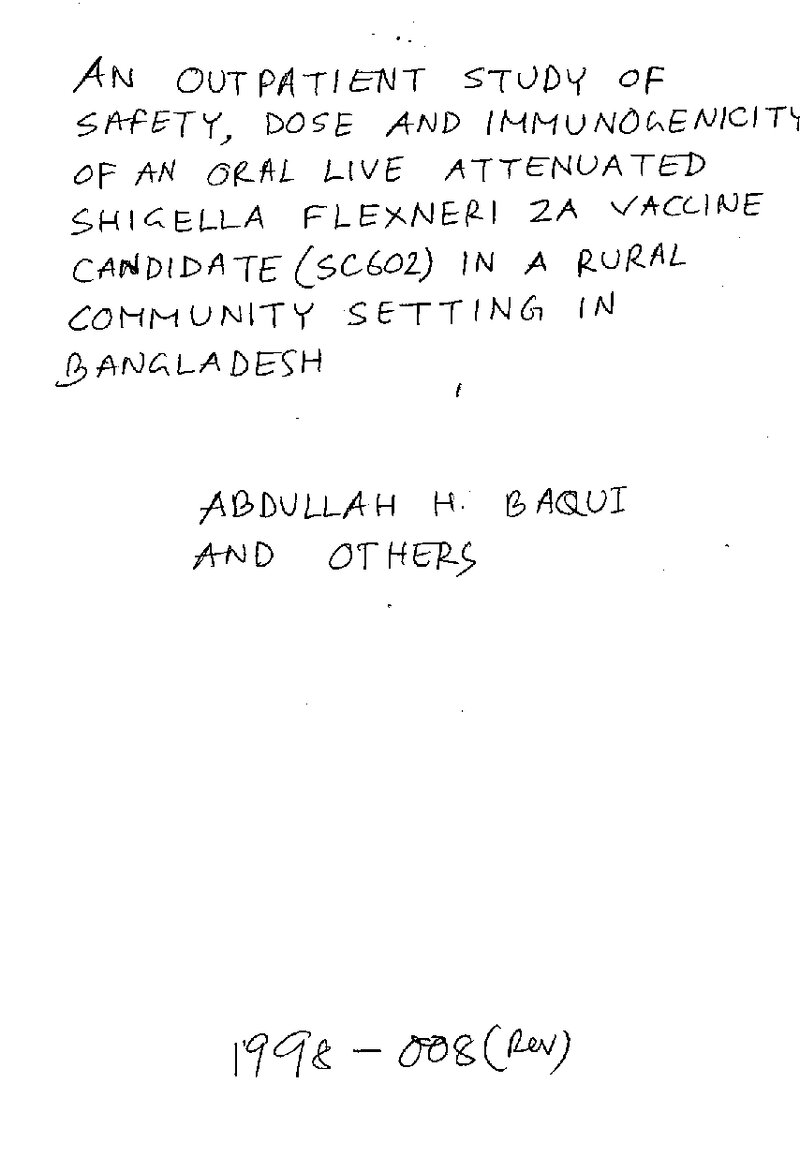 AN OUTPATIENT STUDY OF
SAFETY, DOSE AND IMMUNOGENICITY
OF AN ORAL LIVE ATTENUATED
SHIGELLA FLEXNERI 2A VACCINE
CANDIDATE (SC602) IN A RURAL
COMMUNITY SETTING IN
BANGLADESH
ABDULLAH H. BAQUI
AND OTHERS
1998 - 008 (Rev)